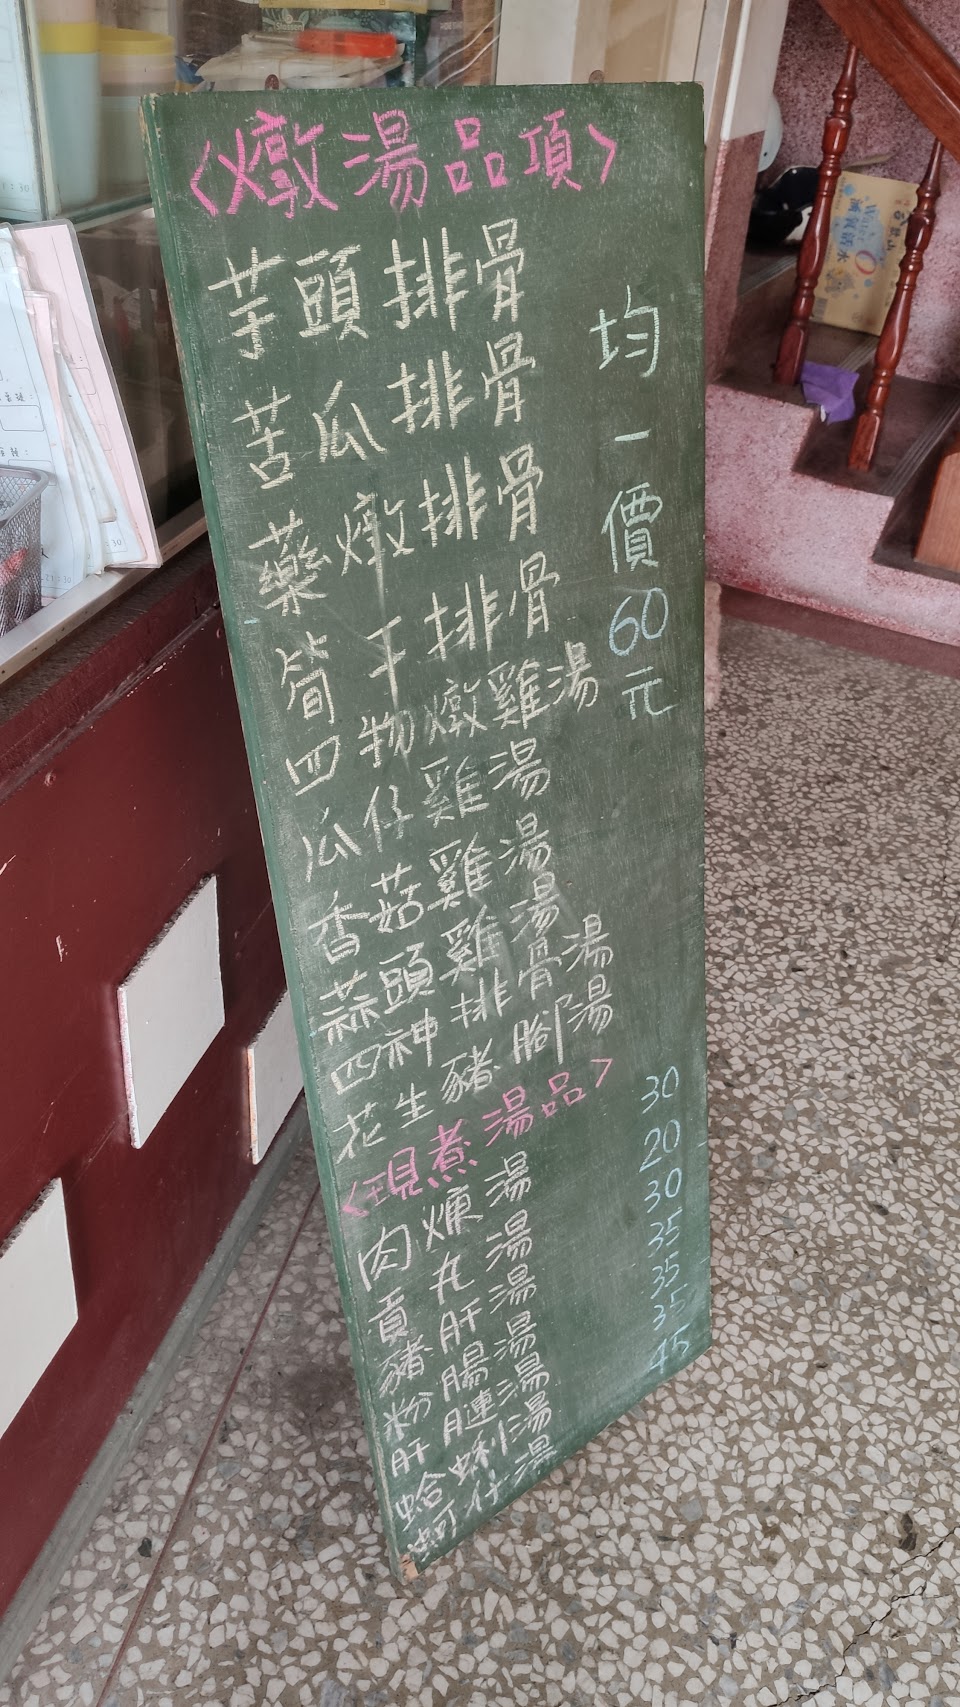 〈燉湯品項〉
芋頭排骨
苦瓜排骨
藥燉排骨
筒干排骨
四物燉雞湯
瓜仔雞湯
香菇雞湯
蒜頭雞湯
四神排骨湯
花生豬腳湯
均一價60元
〈現煮湯品〉
肉焿湯 30
貢丸湯 20
豬肝湯 30
粉腸湯 35
肝膢湯 35
蛤蜊湯 35
蚵仔湯 45